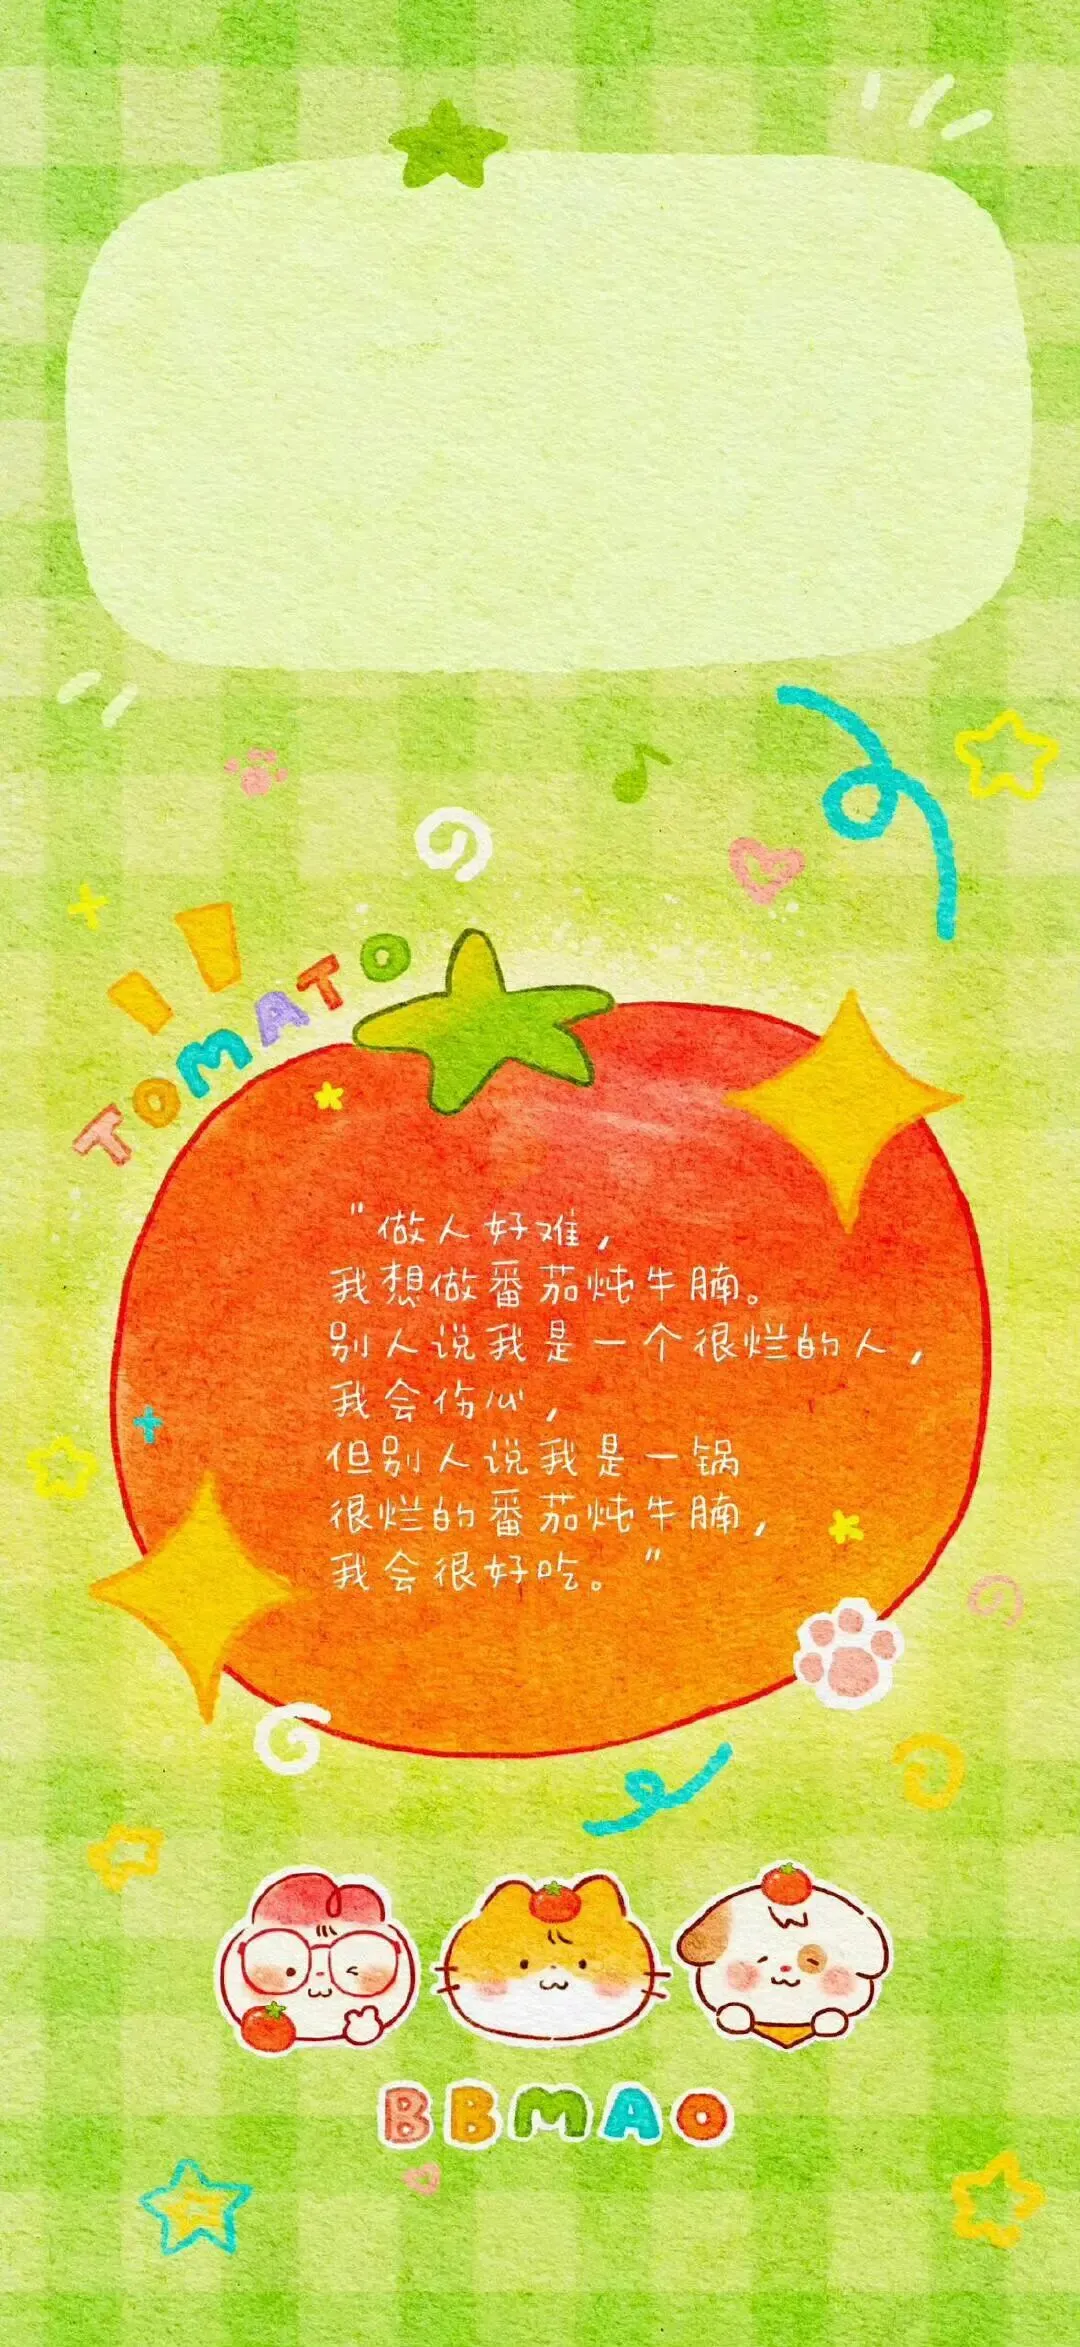 TOMATO
"做人好难，
我想做番茄炖牛腩。
别人说我是一个很烂的人，
我会伤心，
但别人说我是一锅
很烂的番茄炖牛腩，
我会很好吃。"
BBMAO